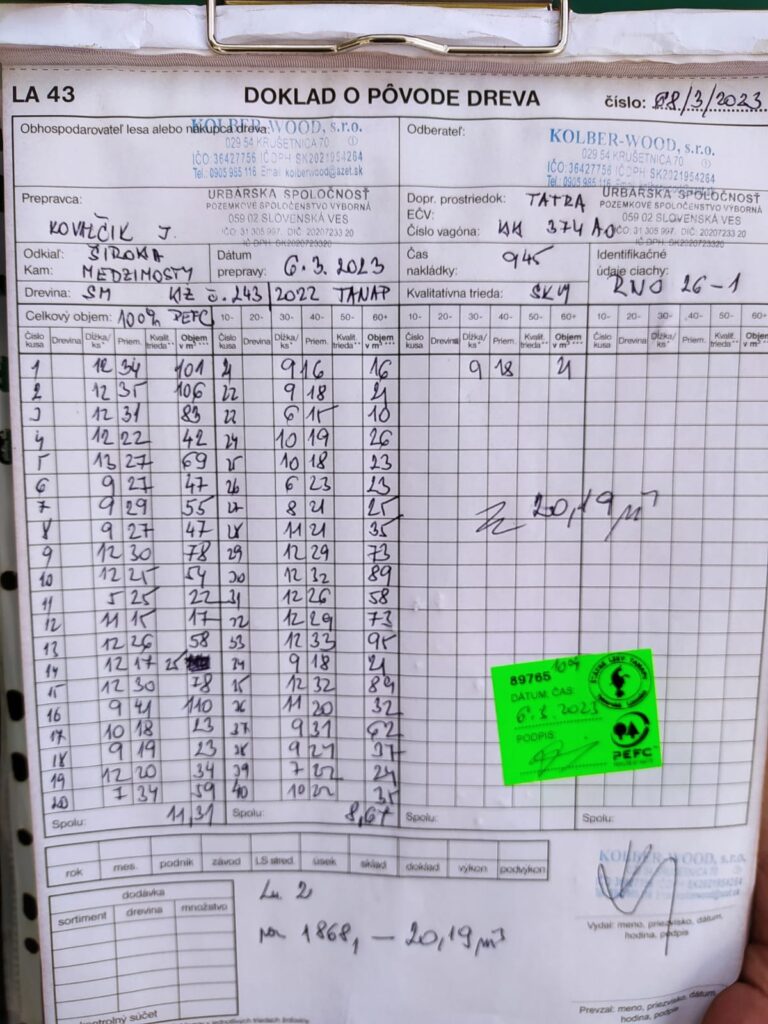 LA 43 DOKLAD O PÔVODE DREVA číslo: 68/3/2023
Obhospodarovateľ lesa alebo nákupca dreva: Odberateľ:
KOLBER-WOOD, s.r.o. KOLBER-WOOD, s.r.o.
029 54 KRUŠETNICA 70 029 54 KRUŠETNICA 70
IČO:36427756 IČ DPH SK2021954264 IČO:36427756 IČ DPH SK2021954264
Tel.: 0905 985 116 Email: kolberwood@azet.sk Tel.: 0905 985 116 Email: kolberwood@azet.sk
Prepravca: URBÁRSKA SPOLOČNOSŤ Dopr. prostriedok: TATRA URBÁRSKA SPOLOČNOSŤ
POZEMKOVÉ SPOLOČENSTVO VÝBORNÁ EČV: POZEMKOVÉ SPOLOČENSTVO VÝBORNÁ
KOVALČIK J. 059 02 SLOVENSKÁ VES Číslo vagóna: KK 374 AO 059 02 SLOVENSKÁ VES
IČO: 31 305 997, DIČ: 2020722320 IČO: 31 305 997, DIČ: 2020722320
IČ DPH: SK2020722320 IČ DPH: SK2020722320
Odkiaľ: ŠIROKA Dátum Čas Identifikačné
Kam: MEDZIMOSTY prepravy: 6.3.2023 nakládky: 945 údaje ciachy: RNO 26-1
Drevina: SM KIZ č. 243/2022 TANAP Kvalitatívna trieda: SK
Celkový objem: 100% PEFC 10- 20- 30- 40- 50- 60+ 10- 20- 30- 40- 50- 60+ 10- 20- 30- 40- 50- 60+
Číslo kusa Drevina Dĺžka/ks* Priem. Kvalit. trieda** Objem v m³ *** Číslo kusa Drevina Dĺžka/ks* Priem. Kvalit. trieda** Objem v m³ *** Číslo kusa Drevina Dĺžka/ks* Priem. Kvalit. trieda** Objem v m³ *** Číslo kusa Drevina Dĺžka/ks* Priem. Kvalit. trieda** Objem v m³
1 12 34 101 21 9 16 16 9 18 21
2 12 35 106 22 9 18 21
3 12 31 83 22 6 15 10
4 12 22 42 24 10 19 26
5 13 27 69 25 10 18 23
6 9 27 47 26 6 23 23
7 9 29 55 27 8 21 25
8 9 27 47 28 11 21 35
9 12 30 78 29 12 29 73
10 12 25 54 30 12 32 89
11 5 25 22 31 12 26 58
12 11 15 17 32 12 29 73
13 12 26 58 33 12 33 95
14 12 17 25 34 9 18 21
15 12 30 78 35 12 32 89
16 9 41 110 36 11 20 32
17 10 18 23 37 9 31 62
18 9 19 23 38 9 24 37
19 12 20 34 39 7 22 24
20 7 34 59 40 10 22 35
20,19 m³
Spolu: 11,31 Spolu: 8,67 Spolu: Spolu:
89765 100%
DÁTUM, ČAS:
6.3.2023
PODPIS:
PEFC
rok mes. podnik závod LS stred. úsek sklad doklad výkon podvýkon
KOLBER-WOOD, s.r.o.
dodávka
sortiment drevina množstvo
Vydal: meno, priezvisko, dátum, hodina, podpis
1868, — 20,19 m³
kontrolný súčet
Prevzal: meno, priezvisko, dátum, hodina, podpis